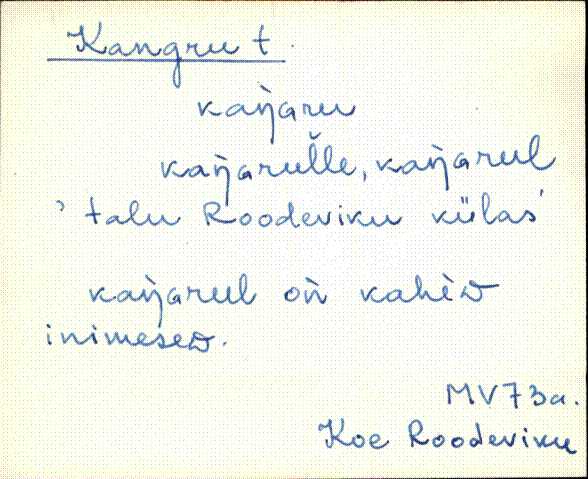 Kangru t.
kaŋ̀aru
kaŋ̀arul̆le, kaŋ̀arul
’talu Roodeviku külas’
kaŋ̀arul oǹ kahèᴅ
inimeseᴅ.
MV73a.
Koe Roodeviku